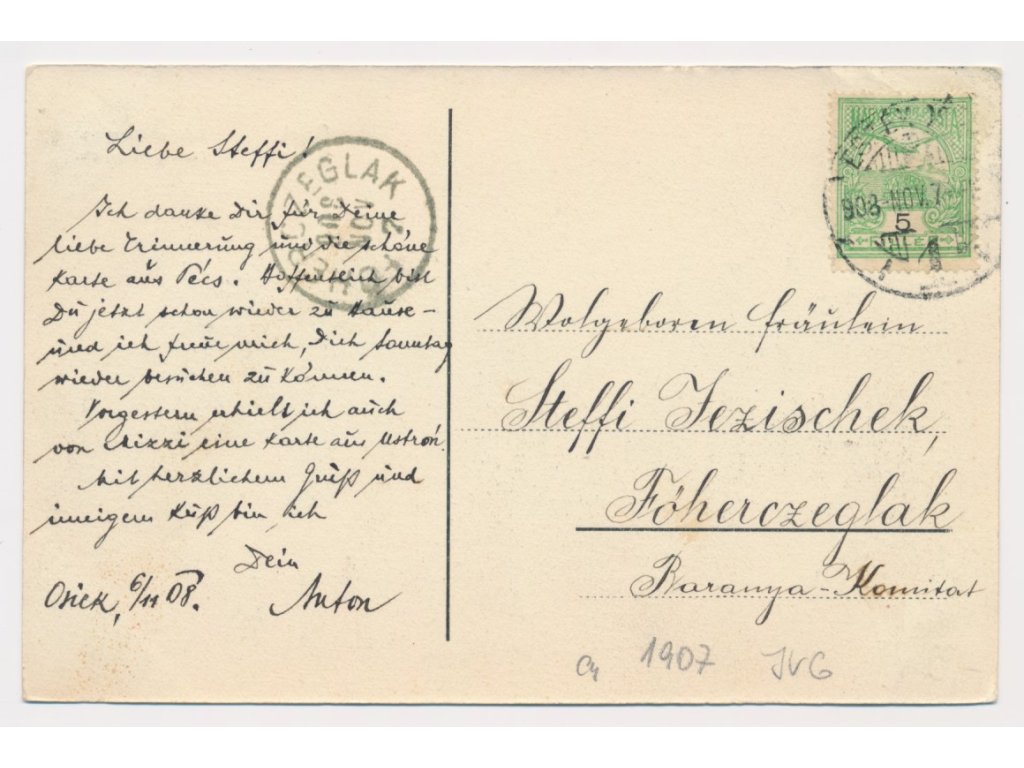 Liebe Steffi!
Ich danke Dir für Deine
liebe Erinnerung und die schöne
Karte aus Pécs. Hoffentlich bist
Du jetzt schon wieder zu Hause –
und ich freue mich, Dich Sonntag
wieder besuchen zu können.
Vorgestern erhielt ich auch
von Mizzi eine Karte aus Ustroń.
Mit herzlichem Gruß und
innigem Kuß bin ich
Dein
Osiek, 6/11 08. Anton
HERCZEGLAK
908 NOV. 7
5
Wolgeboren Fräulein
Steffi Jezischek,
Főherczeglak
Baranya-Komitat
1907 JVG